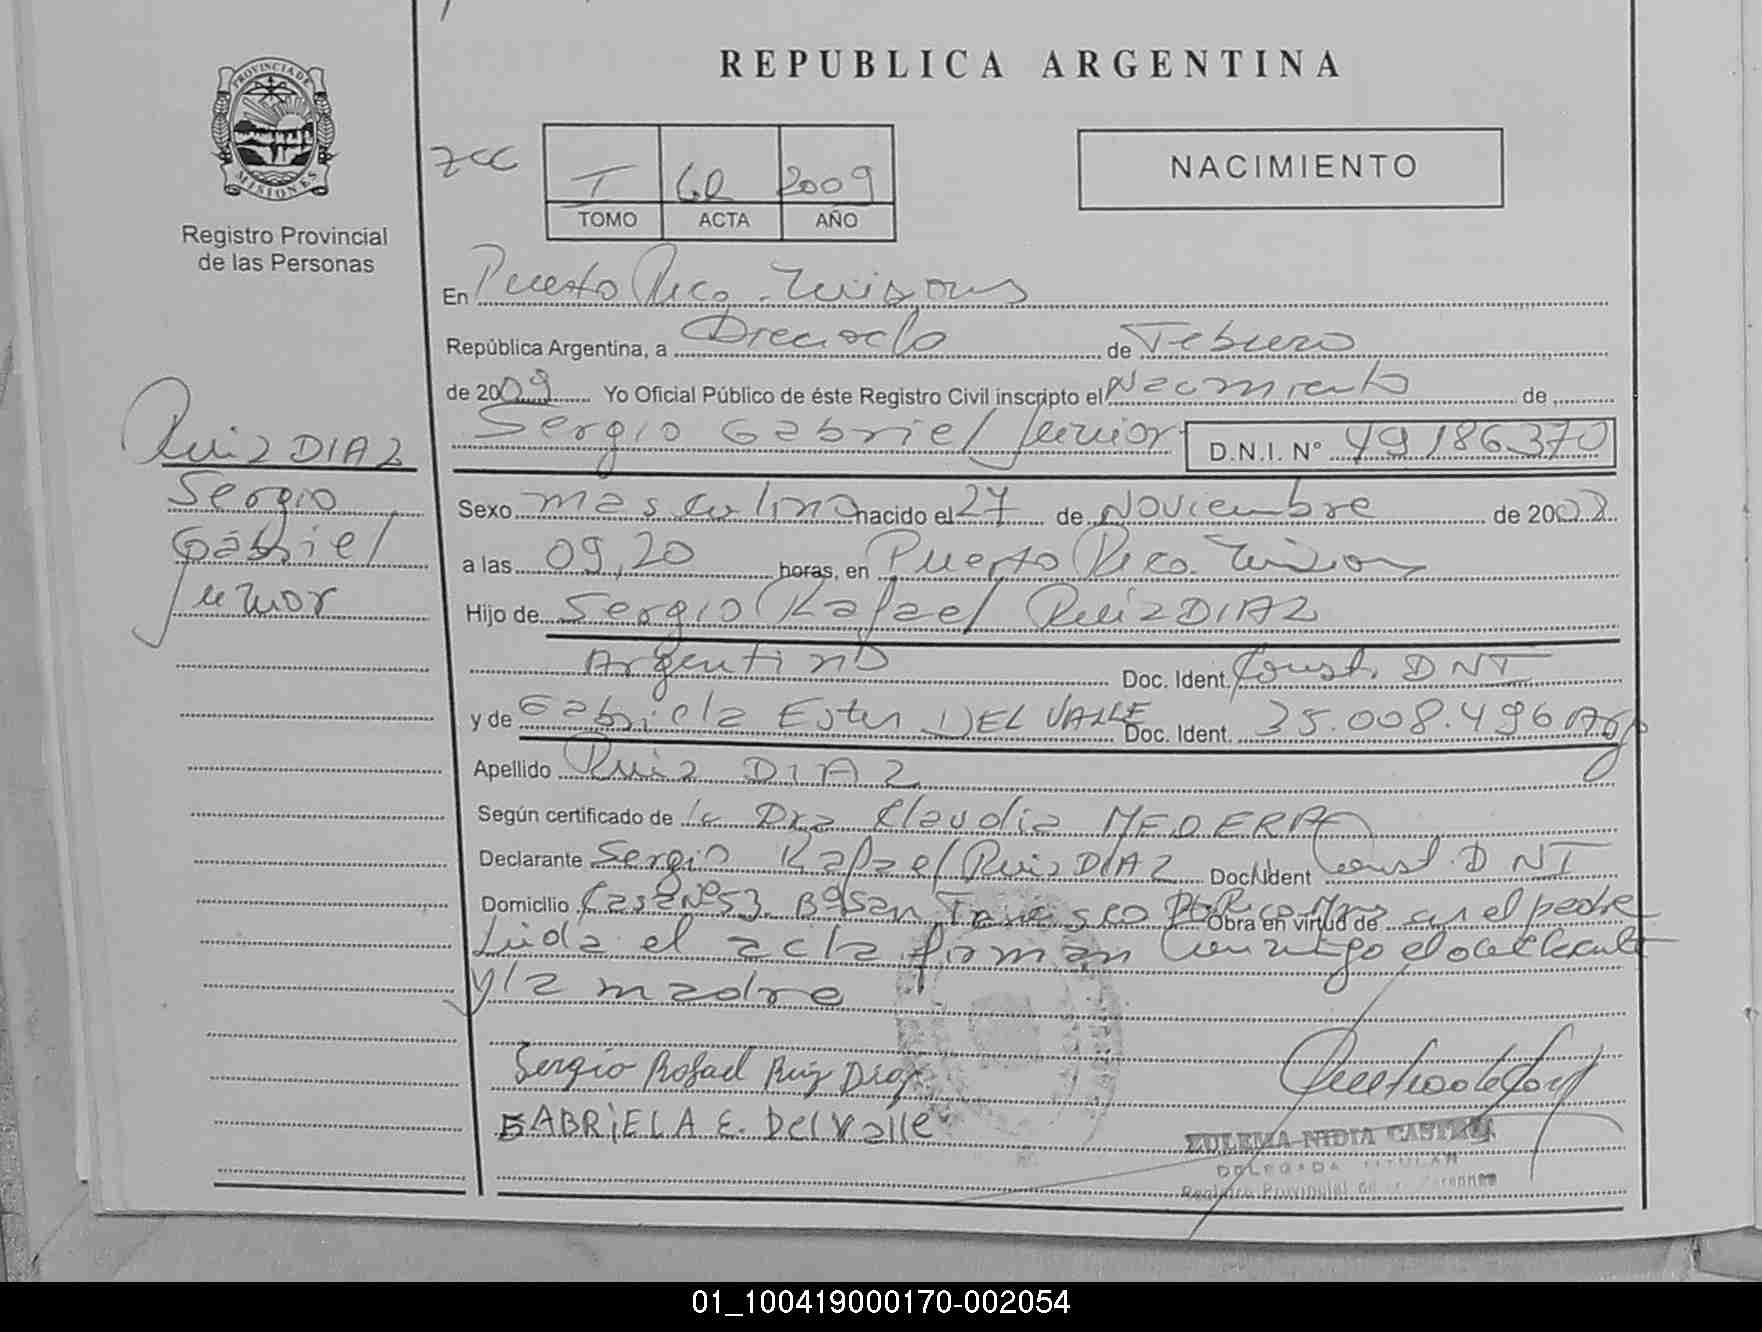 REPUBLICA ARGENTINA
PROVINCIA DE
MISIONES
Registro Provincial
de las Personas
I 2009
TOMO ACTA AÑO
NACIMIENTO
En Puerto Rico. Misiones
República Argentina, a Dieciocho de Febrero
de 2009 Yo Oficial Público de éste Registro Civil inscripto el Nacimiento de
Sergio Gabriel Junior D.N.I. Nº 49186370
Ruiz DIAZ
Sergio
Gabriel
Junior
Sexo masculino nacido el 27 de Noviembre de 2008
a las 09,20 horas, en Puerto Rico. Misiones
Hijo de Sergio Rafael Ruiz DIAZ
Argentino Doc. Ident. Const. DNI
y de Gabriela Ester DEL VALLE Doc. Ident. 35.008.496 Arg
Apellido Ruiz DIAZ
Según certificado de la Dra Claudia
Declarante Sergio Rafael Ruiz DIAZ Doc. Ident Const. DNI
Domicilio Casa Nº53. Obra en virtud de ser el padre
Leída el acta firman conmigo el declarante
y la madre
Sergio Rafael Ruiz Diaz
GABRIELA E. Del Valle
ZULEMA NIDIA CASTRO
DELEGADA TITULAR
Registro Provincial de las Personas
01_100419000170-002054